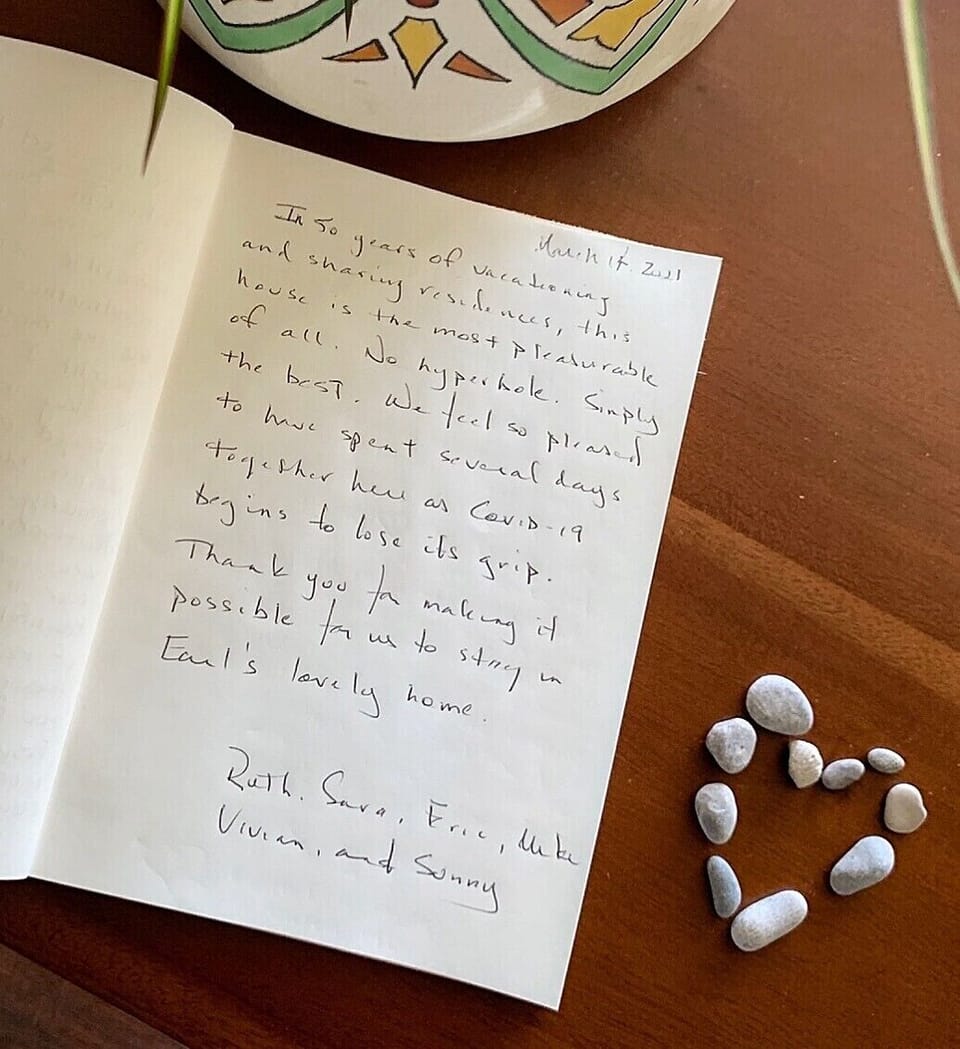 March 17. 2021
In 50 years of vacationing
and sharing residences, this
house is the most pleasurable
of all. No hyperbole. Simply
the best. We feel so pleased
to have spent several days
together here as Covid-19
begins to lose its grip.
Thank you for making it
possible for us to stay in
Earl's lovely home.
Ruth. Sara, Eric, Mike
Vivian, and Sonny